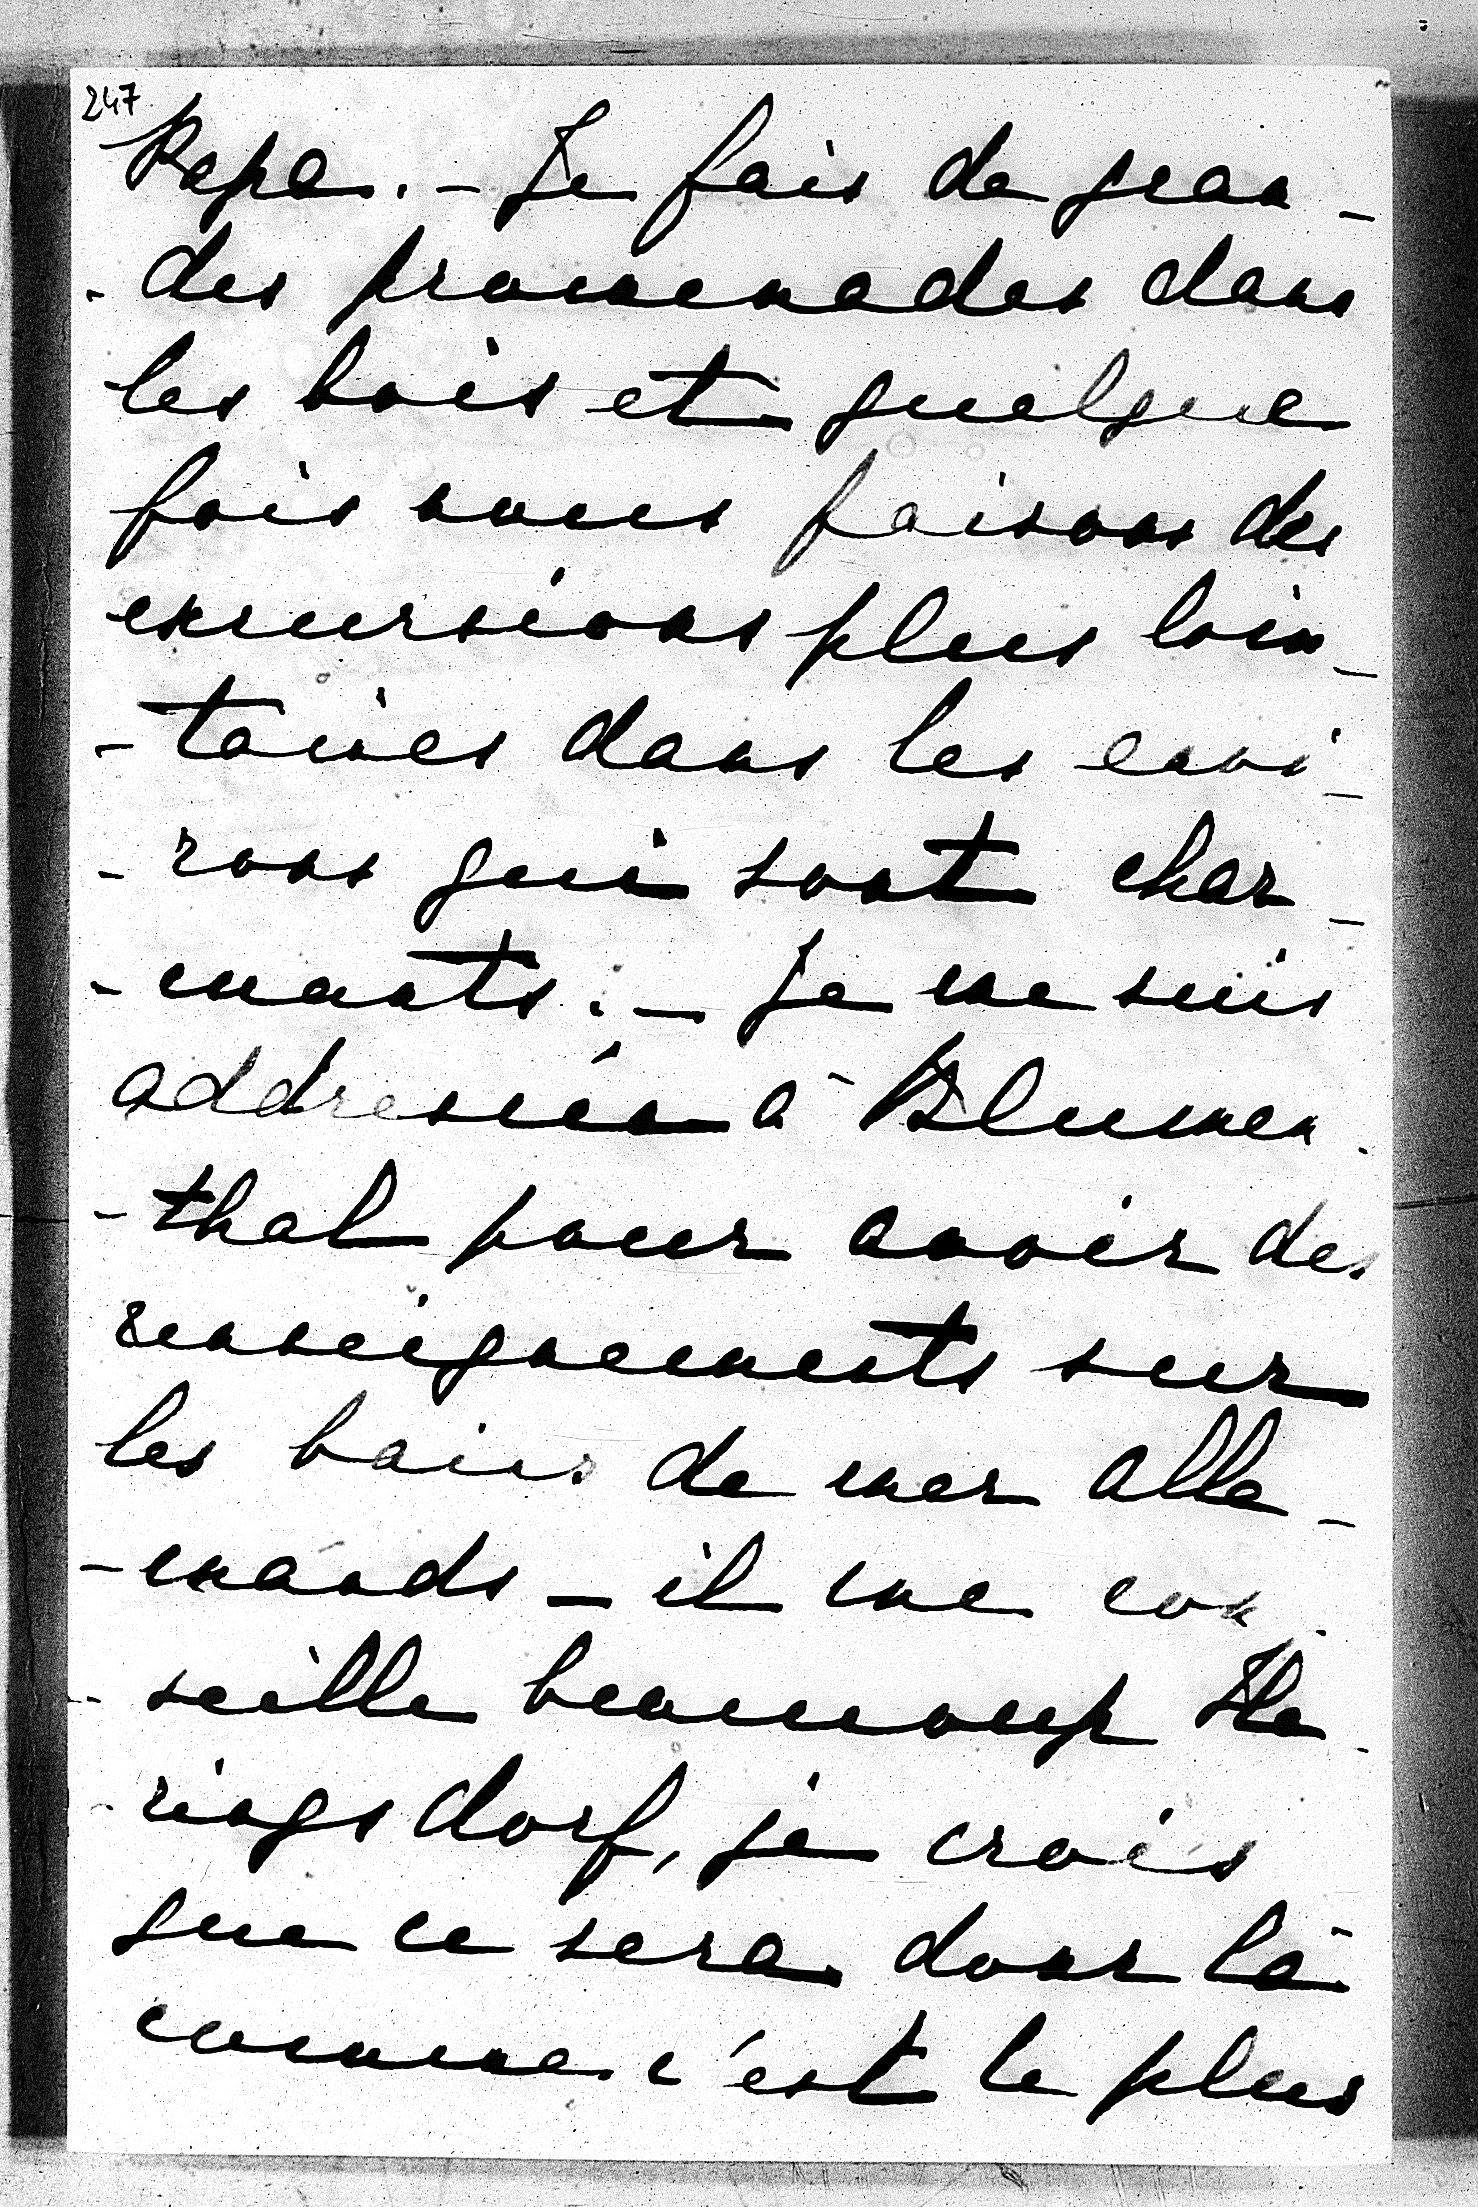 247
Papa. – Je fais de gran-
- des promenades dans
les bois et quelque
fois nous faisons des
excursions plus loin-
- taines dans les envi-
- rons qui sont char-
- mants. – Je me suis
addressée à Blumen-
- thal pour avoir des
renseignements sur
les bains de mer alle-
- mands – il me con-
- seille beaucoup He-
- ringsdorf, je crois
que ce sera donc là
comme c'est le plus